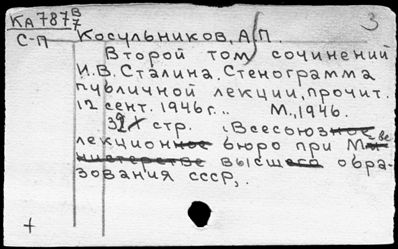 КА 787 В/7
3
С-П
Косульников, А.П.
Второй том сочинений
И.В. Сталина. Стенограмма
публичной лекции, прочит.
12 сент. 1946 г. .. М., 1946.
стр. Всесоюзное
лекционное бюро при М-ве
министерстве высшего обра-
зования СССР,.